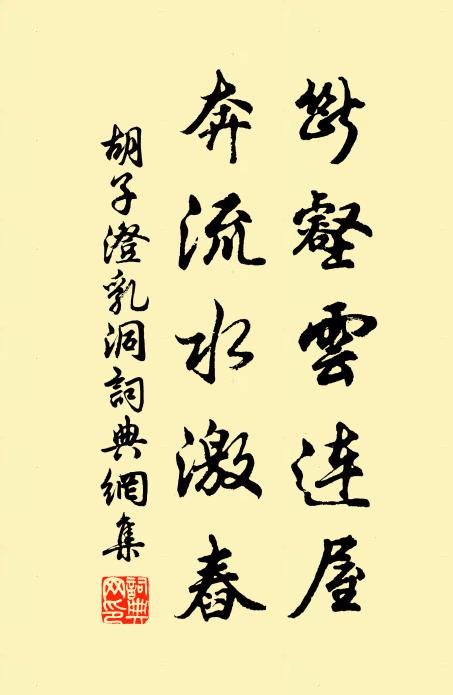 斷壑雲連屋
奔流水激舂
胡子澄乳洞詞典網集
詞典網印